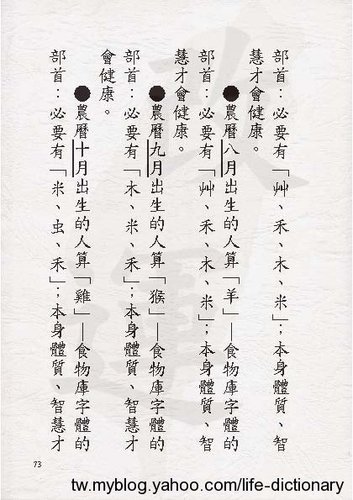 部首：必要有「艸、禾、木、米」；本身體質、智
慧才會健康。
●農曆八月出生的人算「羊」—食物庫字體的
部首：必要有「艸、禾、木、米」；本身體質、智
慧才會健康。
●農曆九月出生的人算「猴」—食物庫字體的
部首：必要有「木、米、禾」；本身體質、智慧才
會健康。
●農曆十月出生的人算「雞」—食物庫字體的
部首：必要有「米、虫、禾」；本身體質、智慧才
73
tw.myblog.yahoo.com/life-dictionary